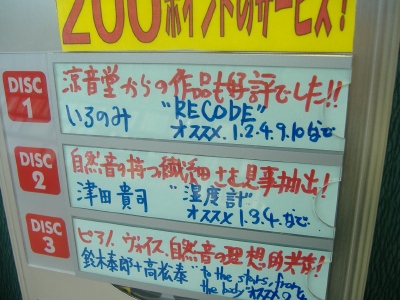 200ポイントのサービス!
DISC 1
涼音堂からの作品も好評でした!!
いろのみ "RECODE"
オススメ.1.2.4.9.10など
DISC 2
自然音の持つ繊細さを見事抽出!
津田貴司 "湿度計"
オススメ 1.3.4.など.
DISC 3
ピアノ、ヴォイス、自然音の理想的共存!
鈴木泰郎+高松泰 "to the stars, from
the body オススメ